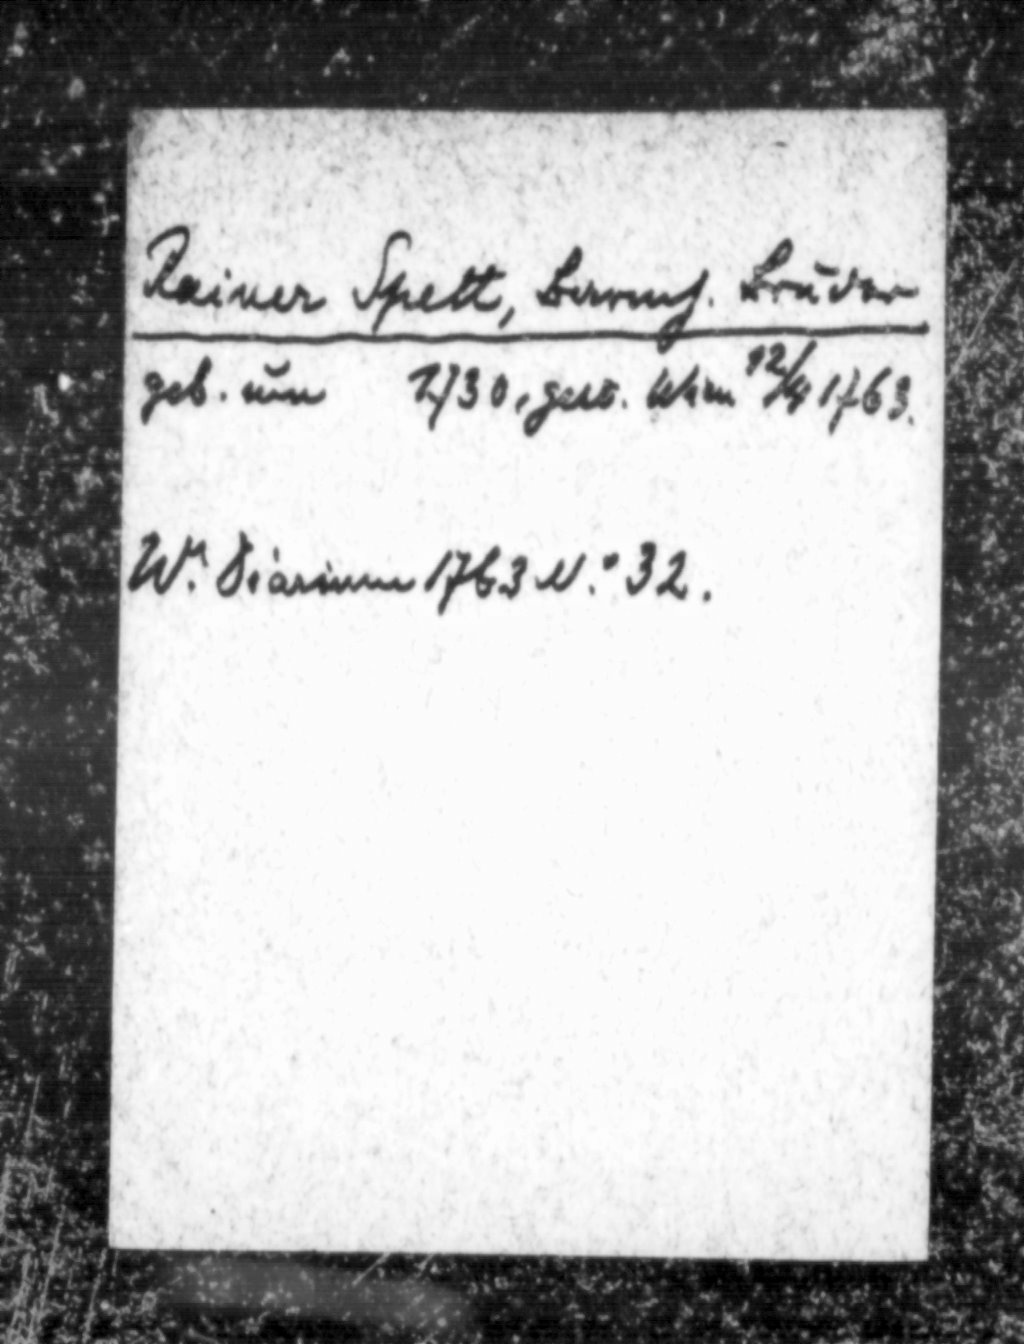 Rainer Spett, Barmh. Bruder
geb. um 1730, gest. Wien 12/4 1763.
Wr. Diarium 1763 N.° 32.